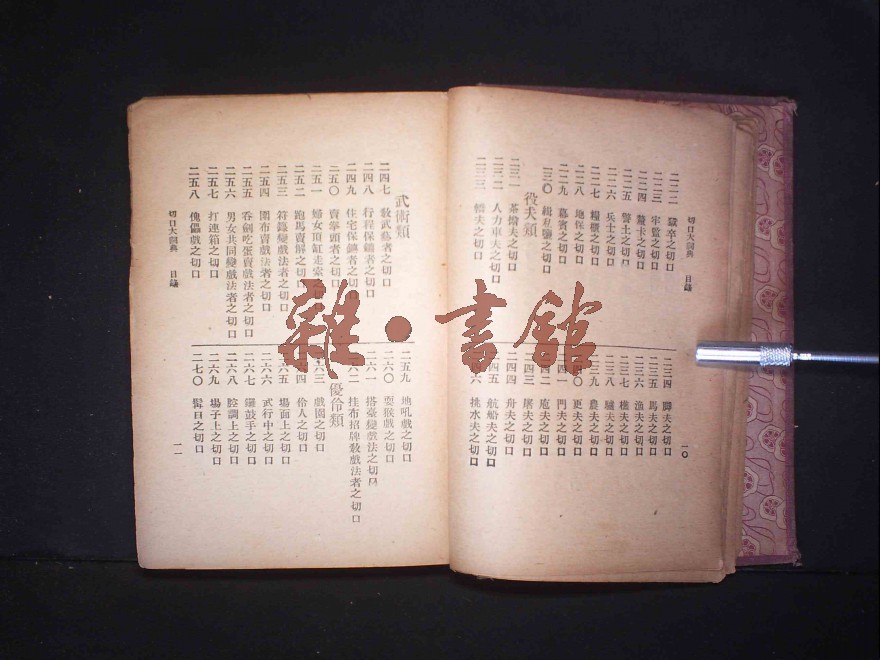 切口大詞典 目錄
二二二 獄卒之切口
二二三 牢監之切口
二二四 釐卡之切口
二二五 警士之切口
二二六 兵士之切口
二二七 糧櫃之切口
二二八 地保之切口
二二九 幕賓之切口
二三〇 緝私鹽之切口
役夫類
二三一 茶燈夫之切口
二三二 人力車夫之切口
二三三 轎夫之切口
二三四 脚夫之切口
二三五 馬夫之切口
二三六 漁夫之切口
二三七 樵夫之切口
二三八 驢夫之切口
二三九 農夫之切口
二四〇 更夫之切口
二四一 門夫之切口
二四二 庖夫之切口
二四三 屠夫之切口
二四四 舟夫之切口
二四五 航船夫之切口
二四六 挑水夫之切口
一〇
武術類
二四七 敎武藝者之切口
二四八 行程保鑣者之切口
二四九 住宅保鑣者之切口
二五〇 賣拳頭者之切口
二五一 婦女頂缸走索之切口
二五二 跑馬賣解之切口
二五三 符籙變戲法者之切口
二五四 圍布賣戲法者之切口
二五五 吞劍吃蛋賣戲法者之切口
二五六 男女共同變戲法者之切口
二五七 打連箱之切口
二五八 傀儡戲之切口
切口大詞典 目錄
二五九 地吼戲之切口
二六〇 耍猴戲之切口
二六一 搭臺變戲法之切口
二六二 挂布招牌敎戲法者之切口
優伶類
二六三 戲園之切口
二六四 伶人之切口
二六五 場面上之切口
二六六 武行中之切口
二六七 鑼鼓手之切口
二六八 腔調上之切口
二六九 場子上之切口
二七〇 髯旦之切口
一一
雜·書館